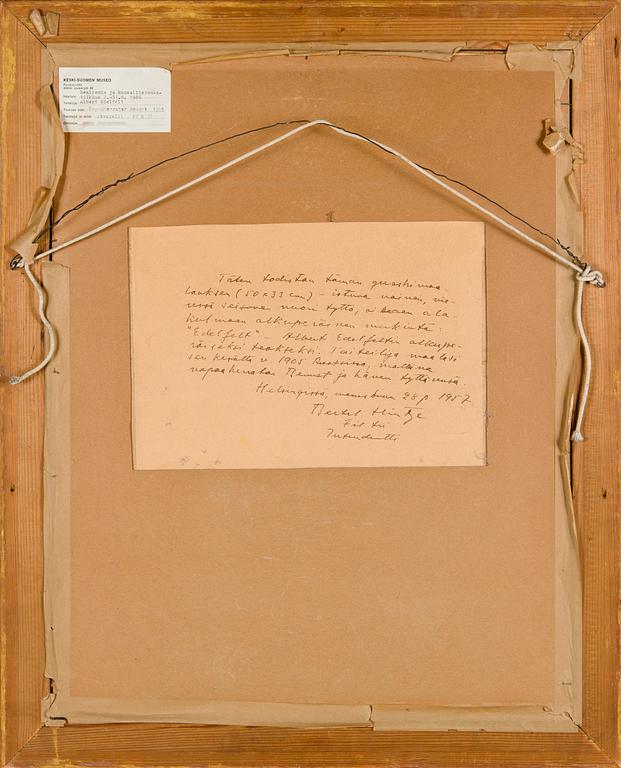 KESKI-SUOMEN MUSEO
Realismia ja kansallisroman-
Albert Edelfelt
Täten todistan tämän guashimaa-
lauksen (50 x 33 cm) – istuva nainen, vie-
ressä seisova nuori tyttö, oikeaan ala-
kulmaan alkuperäinen merkintä:
"Edelfelt" – Albert Edelfeltin alkupe-
räiseksi teokseksi. Taiteilija maalasi
sen kesällä v. 1905 mallina
ja hänen tyttärensä.
Helsingissä, marraskuun 28 p 1957.
Bertel Hintze
Fil tri
Intendentti